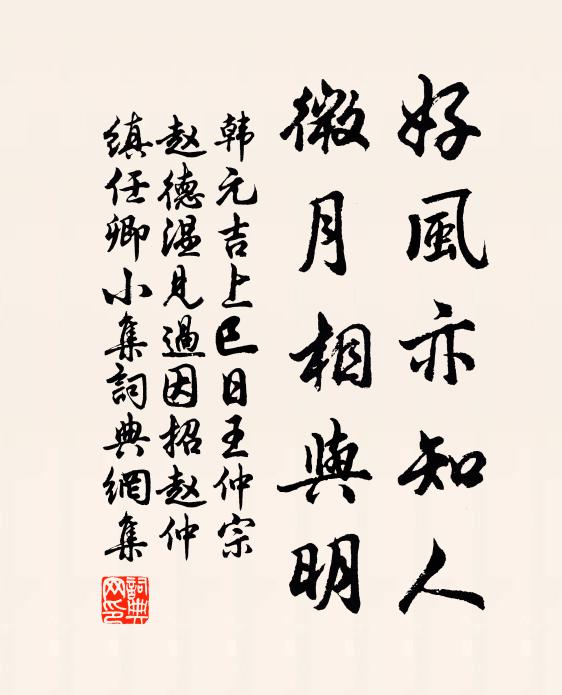 好風亦知人
微月相與明
韩元吉上巳日王仲宗
赵德温见過因招赵仲
缜任卿小集詞典網集
詞典
网印